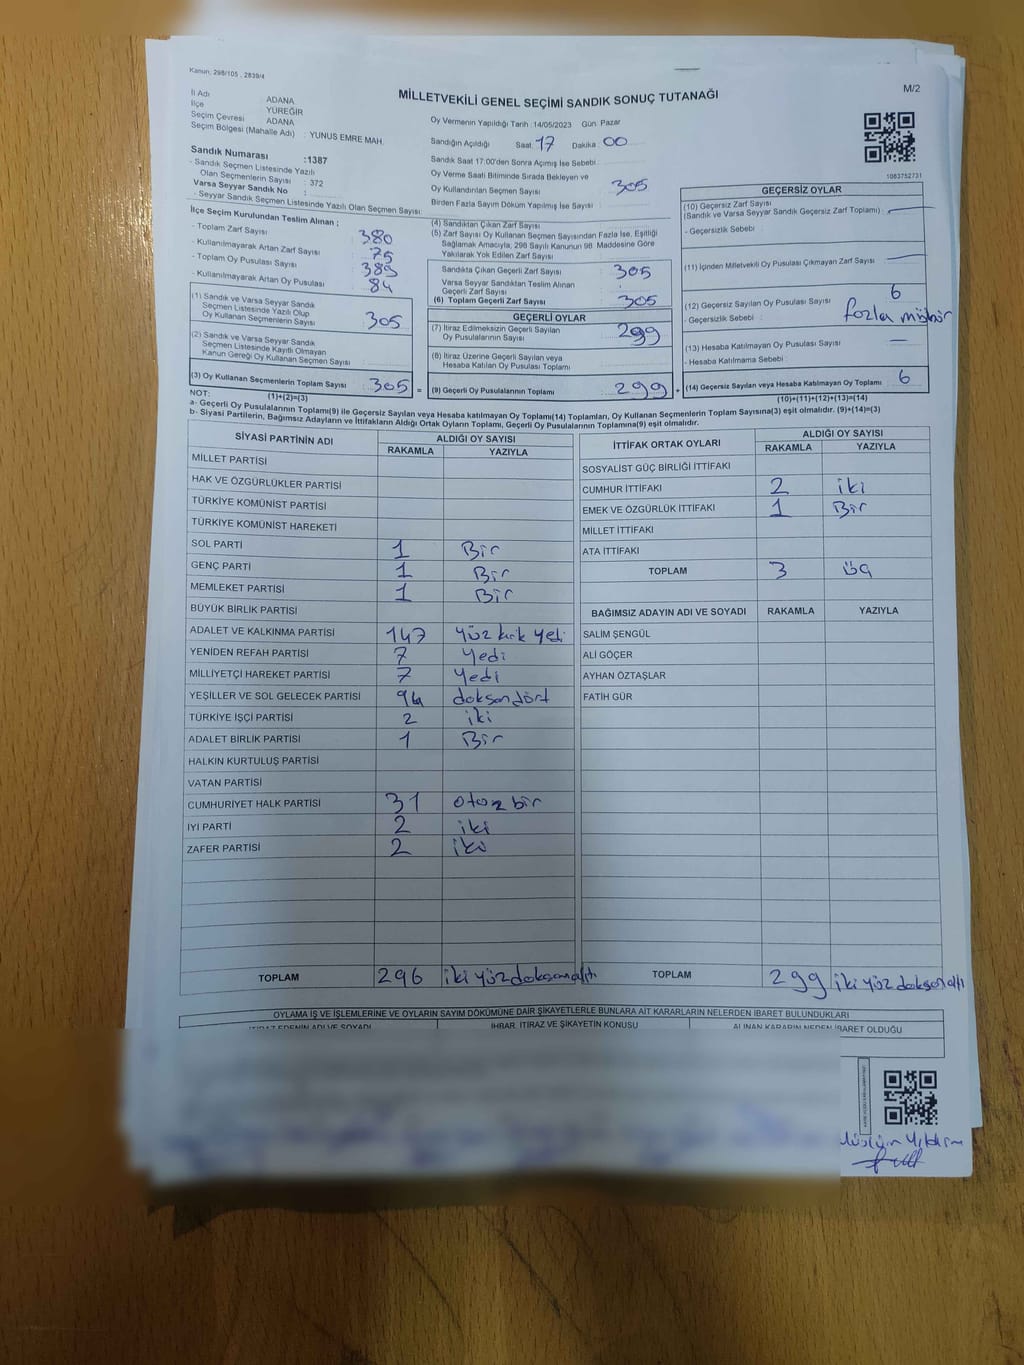 Kanun; 298/105 , 2839/4
MİLLETVEKİLİ GENEL SEÇİMİ SANDIK SONUÇ TUTANAĞI
M/2
İl Adı : ADANA
İlçe : YÜREĞİR
Seçim Çevresi : ADANA
Seçim Bölgesi (Mahalle Adı) : YUNUS EMRE MAH.
Sandık Numarası :1387
- Sandık Seçmen Listesinde Yazılı
Olan Seçmenlerin Sayısı : 372
Varsa Seyyar Sandık No :
- Seyyar Sandık Seçmen Listesinde Yazılı Olan Seçmen Sayısı:
Oy Vermenin Yapıldığı Tarih :14/05/2023 Gün: Pazar
Sandığın Açıldığı Saat: 17 Dakika: 00
Sandık Saat 17:00'den Sonra Açımış İse Sebebi
Oy Verme Saati Bitiminde Sırada Bekleyen ve
Oy Kullandırılan Seçmen Sayısı 305
Birden Fazla Sayım Döküm Yapılmış İse Sayısı
1083752731
İlçe Seçim Kurulundan Teslim Alınan ;
- Toplam Zarf Sayısı : 380
- Kullanılmayarak Artan Zarf Sayısı : 75
- Toplam Oy Pusulası Sayısı : 389
- Kullanılmayarak Artan Oy Pusulası : 84
(1) Sandık ve Varsa Seyyar Sandık
Seçmen Listesinde Yazılı Olup
Oy Kullanan Seçmenlerin Sayısı : 305
(2) Sandık ve Varsa Seyyar Sandık
Seçmen Listesinde Kayıtlı Olmayan
Kanun Gereği Oy Kullanan Seçmen Sayısı
(3) Oy Kullanan Seçmenlerin Toplam Sayısı : 305 =
(1)+(2)=(3)
(4) Sandıktan Çıkan Zarf Sayısı
(5) Zarf Sayısı Oy Kullanan Seçmen Sayısından Fazla İse, Eşitliği
Sağlamak Amacıyla, 298 Sayılı Kanunun 98. Maddesine Göre
Yakılarak Yok Edilen Zarf Sayısı
Sandıkta Çıkan Geçerli Zarf Sayısı 305
Varsa Seyyar Sandıktan Teslim Alınan
Geçerli Zarf Sayısı
(6) Toplam Geçerli Zarf Sayısı 305
GEÇERLİ OYLAR
(7) İtiraz Edilmeksizin Geçerli Sayılan
Oy Pusulalarının Sayısı 299
(8) İtiraz Üzerine Geçerli Sayılan veya
Hesaba Katılan Oy Pusulası Toplamı
(9) Geçerli Oy Pusulalarının Toplamı : 299 +
GEÇERSİZ OYLAR
(10) Geçersiz Zarf Sayısı
(Sandık ve Varsa Seyyar Sandık Geçersiz Zarf Toplamı) : —
- Geçersizlik Sebebi :
(11) İçinden Milletvekili Oy Pusulası Çıkmayan Zarf Sayısı —
(12) Geçersiz Sayılan Oy Pusulası Sayısı 6
- Geçersizlik Sebebi : fazla mühür
(13) Hesaba Katılmayan Oy Pusulası Sayısı —
- Hesaba Katılmama Sebebi :
(14) Geçersiz Sayılan veya Hesaba Katılmayan Oy Toplamı 6
(10)+(11)+(12)+(13)=(14)
NOT:
a- Geçerli Oy Pusulalarının Toplamı(9) ile Geçersiz Sayılan veya Hesaba katılmayan Oy Toplamı(14) Toplamları, Oy Kullanan Seçmenlerin Toplam Sayısına(3) eşit olmalıdır. (9)+(14)=(3)
b- Siyasi Partilerin, Bağımsız Adayların ve İttifakların Aldığı Ortak Oyların Toplamı, Geçerli Oy Pusulalarının Toplamına(9) eşit olmalıdır.
SİYASİ PARTİNİN ADI ALDIĞI OY SAYISI
RAKAMLA YAZIYLA
MİLLET PARTİSİ
HAK VE ÖZGÜRLÜKLER PARTİSİ
TÜRKİYE KOMÜNİST PARTİSİ
TÜRKİYE KOMÜNİST HAREKETİ
SOL PARTİ 1 Bir
GENÇ PARTİ 1 Bir
MEMLEKET PARTİSİ 1 Bir
BÜYÜK BİRLİK PARTİSİ
ADALET VE KALKINMA PARTİSİ 147 yüz kırk yedi
YENİDEN REFAH PARTİSİ 7 Yedi
MİLLİYETÇİ HAREKET PARTİSİ 7 Yedi
YEŞİLLER VE SOL GELECEK PARTİSİ 94 doksandört
TÜRKİYE İŞÇİ PARTİSİ 2 iki
ADALET BİRLİK PARTİSİ 1 Bir
HALKIN KURTULUŞ PARTİSİ
VATAN PARTİSİ
CUMHURİYET HALK PARTİSİ 31 otuz bir
İYİ PARTİ 2 iki
ZAFER PARTİSİ 2 iki
TOPLAM 296 iki yüz doksanaltı
İTTİFAK ORTAK OYLARI ALDIĞI OY SAYISI
RAKAMLA YAZIYLA
SOSYALİST GÜÇ BİRLİĞİ İTTİFAKI
CUMHUR İTTİFAKI 2 iki
EMEK VE ÖZGÜRLÜK İTTİFAKI 1 Bir
MİLLET İTTİFAKI
ATA İTTİFAKI
TOPLAM 3 üç
BAĞIMSIZ ADAYIN ADI VE SOYADI RAKAMLA YAZIYLA
SALİM ŞENGÜL
ALİ GÖÇER
AYHAN ÖZTAŞLAR
FATİH GÜR
TOPLAM 299 iki yüz doksanaltı
OYLAMA İŞ VE İŞLEMLERİNE VE OYLARIN SAYIM DÖKÜMÜNE DAİR ŞİKAYETLERLE BUNLARA AİT KARARLARIN NELERDEN İBARET BULUNDUKLARI
İTİRAZ EDENİN ADI VE SOYADI İHBAR, İTİRAZ VE ŞİKAYETİN KONUSU ALINAN KARARIN NEDEN İBARET OLDUĞU
Yıldırım